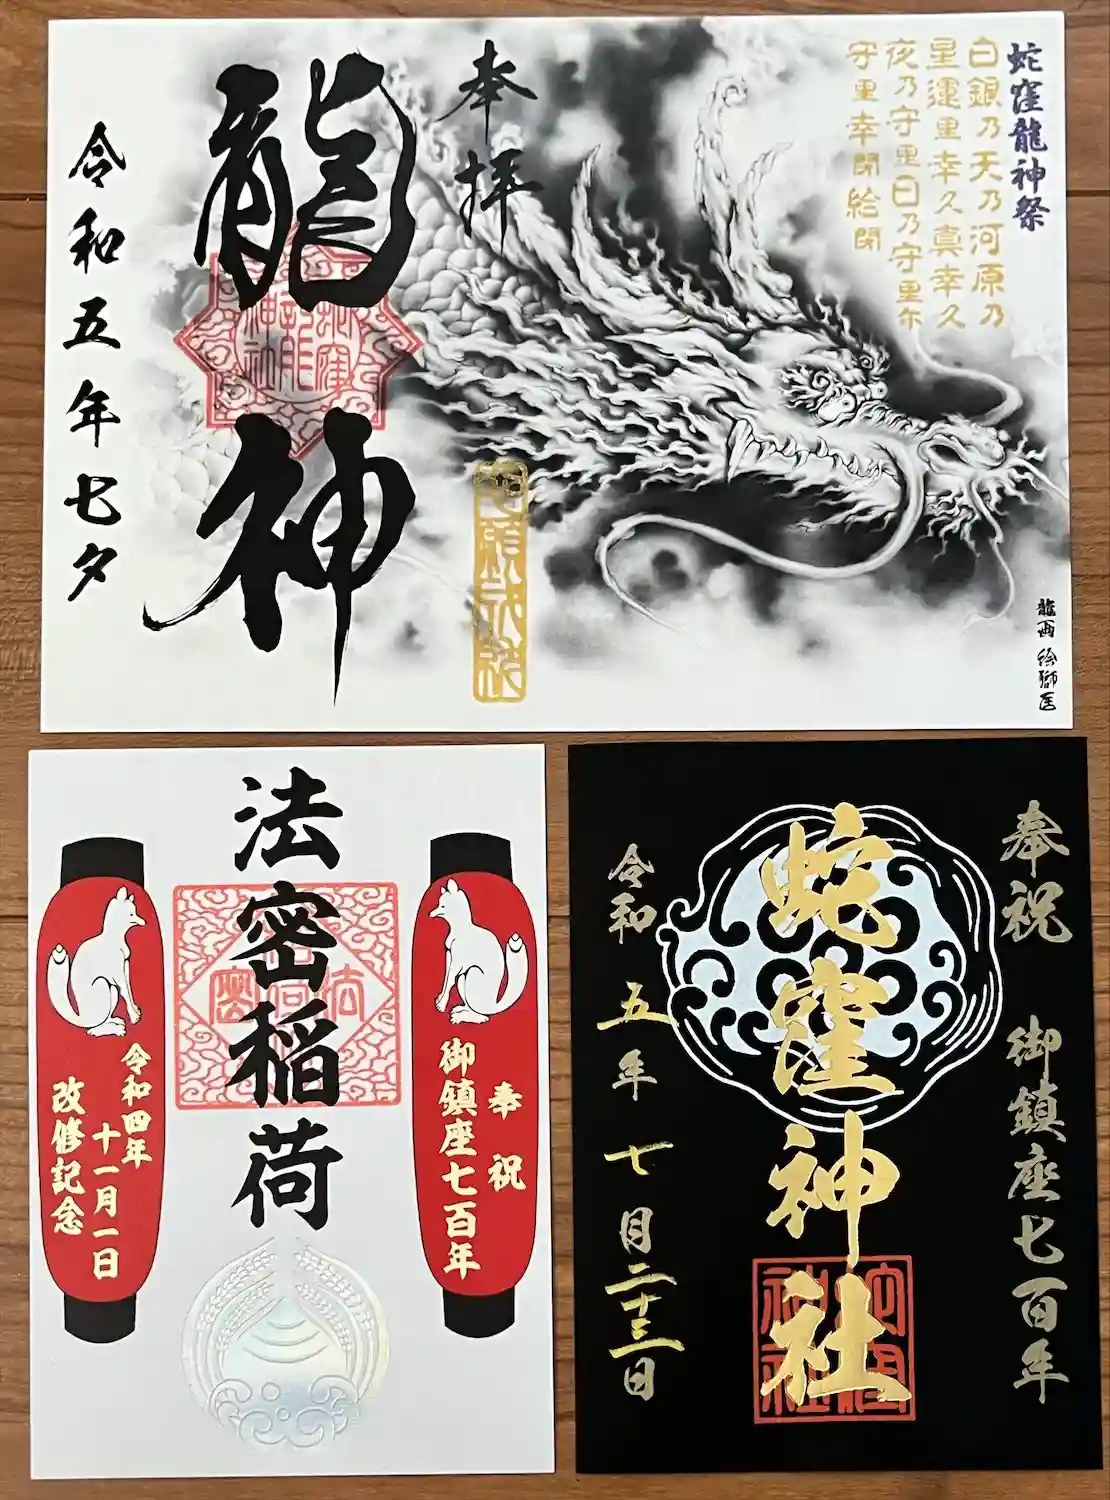 蛇窪龍神祭
白銀乃天乃河原乃
星運里幸久真幸久
夜乃守里日乃守里尓
守里幸閇給閇
奉拝
龍神
令和五年七夕
蛇窪龍神社
龍画 絵獅匡
奉祝
御鎮座七百年
法密稲荷
令和四年
十一月一日
改修記念
奉祝 御鎮座七百年
蛇窪神社
令和五年七月二十三日